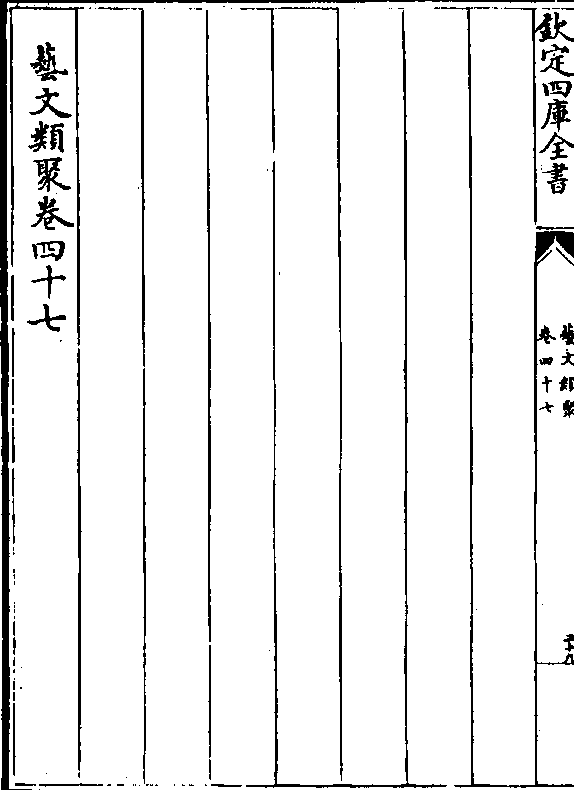 欽定四庫全書
藝文類聚
卷四十七
藝文類聚卷四十七